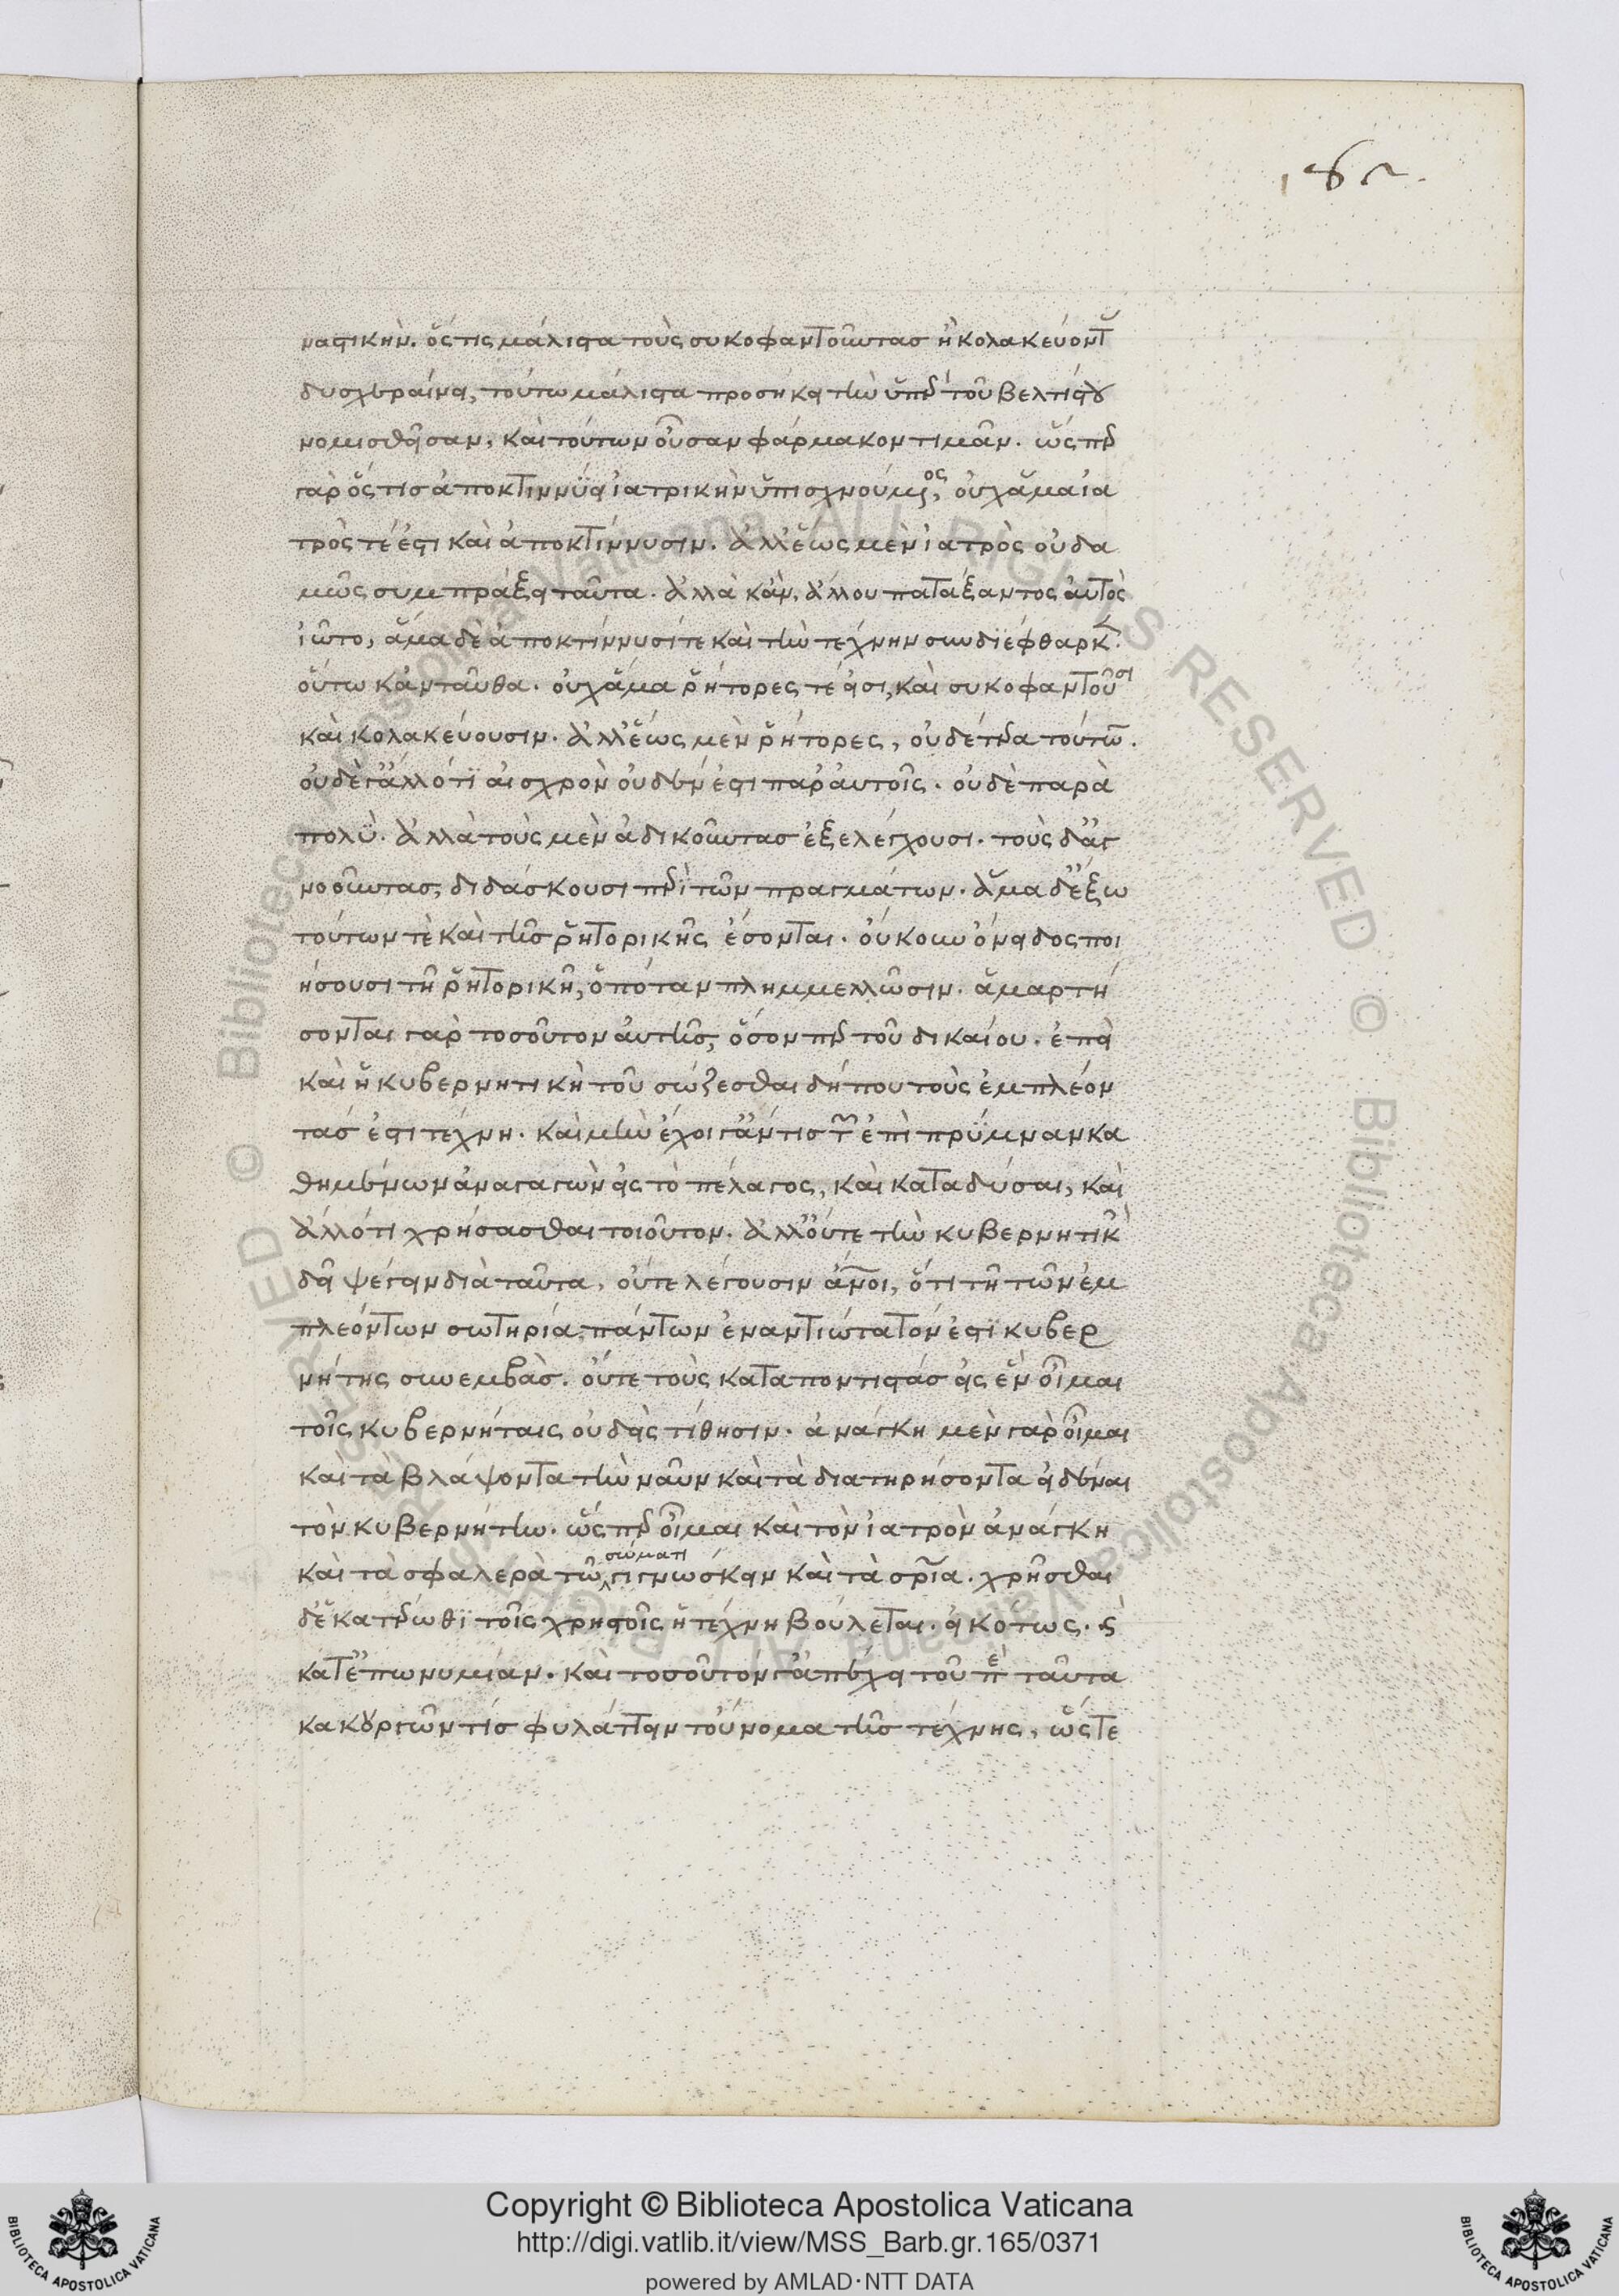 186.
ναστικήν. ὅστις μάλιστα τοὺς συκοφαντοῦντας ἢ κολακεύοντ(ας)
δυσχεραίνει, τούτω μάλιστα προσήκει τὴν ὑπὲρ τοῦ βελτίστου
νομισθεῖσαν, καὶ τούτων οὖσαν φάρμακον τιμᾶν. ὥσπερ
γὰρ ὅστις ἀποκτιννύει ἰατρικὴν ὑπισχνούμενος, οὐχ ἅμα ἰα
τρός τέ ἐστι καὶ ἀποκτίννυσιν. ἀλλ' ἕως μὲν ἰατρὸς οὐδα
μῶς συμπράξει ταῦτα. ἀλλὰ κἂν ἄλλου πατάξαντος αὐτὸς
ἰῶτο, ἅμα δὲ ἀποκτίννυσί τε καὶ τὴν τέχνην συνδιέφθαρκε.
οὕτω κἀνταῦθα. οὐχ ἅμα ῥήτορές τέ εἰσι, καὶ συκοφαντοῦσι
καὶ κολακεύουσιν. ἀλλ' ἕως μὲν ῥήτορες, οὐδέτερα τούτων.
οὐδέ γ' ἄλλό τι αἰσχρὸν οὐδέν ἐστι παρ' αὐτοῖς. οὐδὲ παρὰ
πολύ. ἀλλὰ τοὺς μὲν ἀδικοῦντας ἐξελέγχουσι. τοὺς δ' ἀγ
νοοῦντας, διδάσκουσι περὶ τῶν πραγμάτων. ἅμα δ' ἔξω
τούτων τὲ καὶ τῆς ῥητορικῆς ἔσονται. οὔκουν ὄνειδος ποι
ήσουσι τῆ ῥητορικῆ, ὁπόταν πλημμελλῶσιν. ἁμαρτή
σονται γὰρ τοσοῦτον αὐτῆς, ὅσον περ τοῦ δικαίου. ἐπεὶ
καὶ ἡ κυβερνητικὴ τοῦ σώζεσθαι δήπου τοὺς ἐμπλέον
τάς ἐστι τέχνη. καὶ μὴν ἔχοι γ' ἄν τις τῶν ἐπὶ πρύμναν κα
θημένων ἀναγαγὼν εἰς τὸ πέλαγος, καὶ καταδύσαι, καὶ
ἄλλό τι χρήσασθαι τοιοῦτον. ἀλλ' οὔτε τὴν κυβερνητικὴν
δεῖ ψέγειν διὰ ταῦτα, οὔτε λέγουσιν ἄνοι, ὅτι τῆ τῶν ἐμ
πλεόντων σωτηρία, πάντων ἐναντιώτατόν ἐστι κυβερ
νήτης συνεμβάς. οὔτε τοὺς καταποντιστὰς εἰς ἓν οἶμαι
τοῖς κυβερνήταις οὐδεὶς τίθησιν. ἀνάγκη μὲν γὰρ οἶμαι
καὶ τὰ βλάψοντα τὴν ναῦν καὶ τὰ διατηρήσοντα εἰδέναι
τὸν κυβερνήτην. ὥσπερ οἶμαι καὶ τὸν ἰατρὸν ἀνάγκη
καὶ τὰ σφαλερὰ τῶ σώματι γιγνώσκειν καὶ τὰ σρια. χρῆσθαι
δ' ἑκατέρωθι τοῖς χρηστοῖς ἡ τέχνη βούλεται. εἰκότως. καὶ
κατ' ἐπωνυμίαν. καὶ τοσοῦτόν γ' ἀπέχει τοῦ περὶ ταῦτα
κακουργῶν τίς φυλάττειν τοὔνομα τῆς τέχνης, ὥστε
Copyright © Biblioteca Apostolica Vaticana
http://digi.vatlib.it/view/MSS_Barb.gr.165/0371
powered by AMLAD·NTT DATA